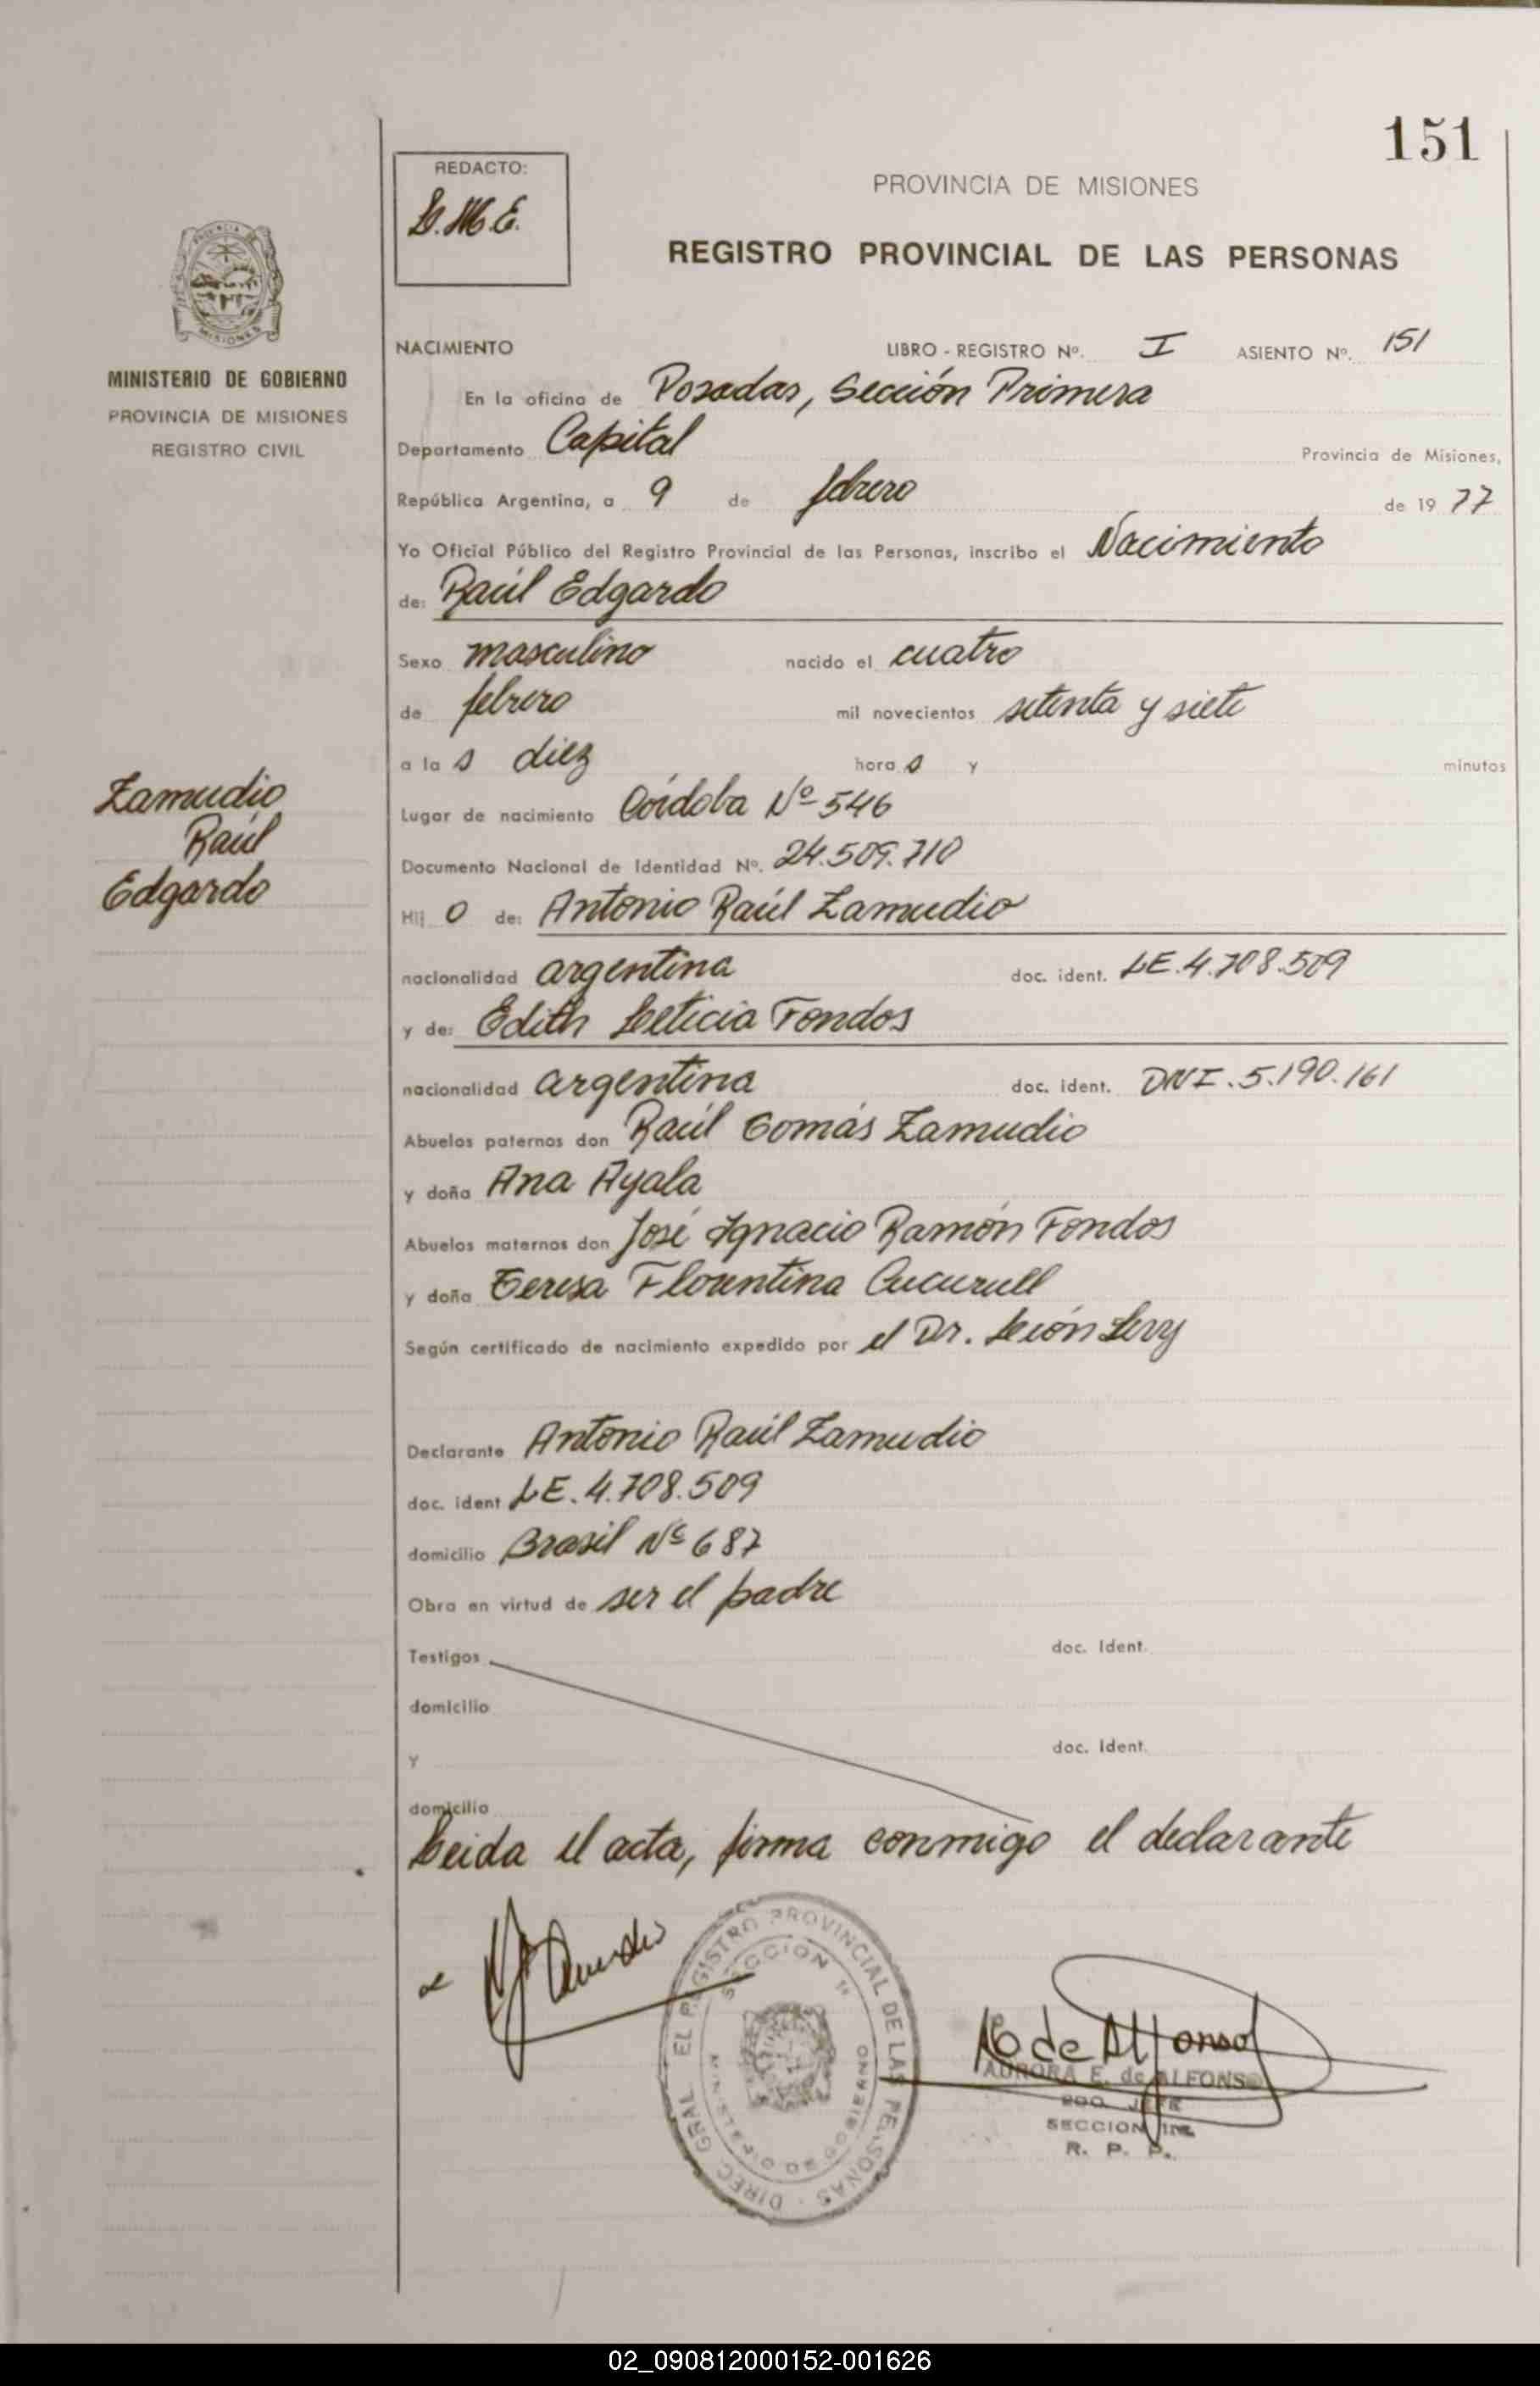 151
REDACTO:
PROVINCIA DE MISIONES
REGISTRO PROVINCIAL DE LAS PERSONAS
MINISTERIO DE GOBIERNO
PROVINCIA DE MISIONES
REGISTRO CIVIL
NACIMIENTO LIBRO - REGISTRO Nº. I ASIENTO Nº. 151
En la oficina de Posadas, Sección Primera
Departamento Capital Provincia de Misiones,
República Argentina, a 9 de febrero de 19 77
Yo Oficial Público del Registro Provincial de las Personas, inscribo el Nacimiento
de: Raúl Edgardo
Sexo masculino nacido el cuatro
de febrero mil novecientos setenta y siete
a la s diez hora s y minutos
Zamudio
Raúl
Edgardo
Lugar de nacimiento Córdoba Nº 546
Documento Nacional de Identidad Nº. 24.509.710
Hij o de: Antonio Raúl Zamudio
nacionalidad argentina doc. ident. LE.4.708.509
y de: Edith Leticia Fondos
nacionalidad argentina doc. ident. DNI.5.190.161
Abuelos paternos don Raúl Tomás Zamudio
y doña Ana Ayala
Abuelos maternos don José Ignacio Ramón Fondos
y doña Teresa Florentina Cucurull
Según certificado de nacimiento expedido por el Dr. León Levy
Declarante Antonio Raúl Zamudio
doc. ident LE.4.708.509
domicilio Brasil Nº 687
Obra en virtud de ser el padre
Testigos doc. Ident.
domicilio
y doc. Ident.
domicilio
Leida el acta, firma conmigo el declarante
DIREC. GRAL. EL REGISTRO PROVINCIAL DE LAS PERSONAS
SECCION 1ª
MINISTERIO DE GOBIERNO
A E de Alfonso
AURORA E. de ALFONSO
2DO. JEFE
SECCION 1ra.
R. P. P.
02_090812000152-001626